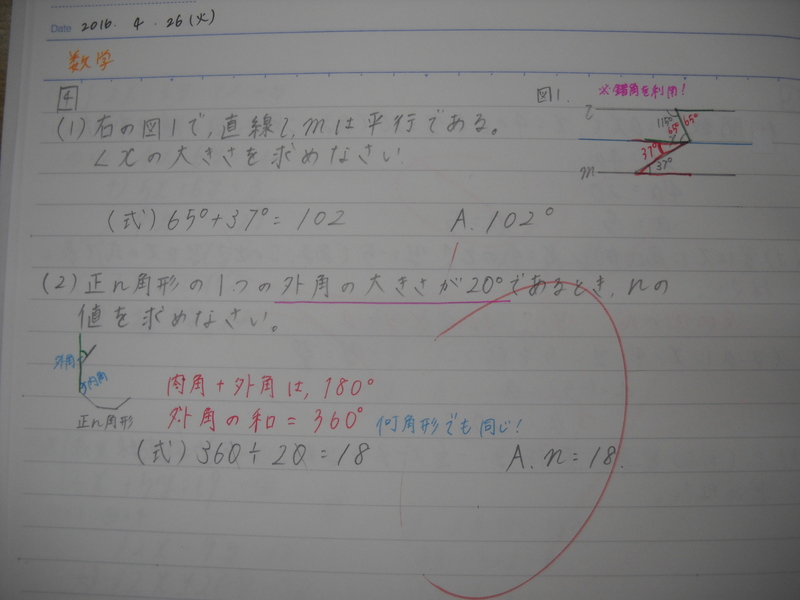 Date 2016. 4. 26 (火)
数学
4
図1.
※錯角を利用!
(1) 右の図1で, 直線l, mは平行である。
∠xの大きさを求めなさい.
l
115°
65°
65°
x
37°
37°
m
(式) 65°+37°= 102
A. 102°
(2) 正n角形の1つの外角の大きさが20°であるとき, nの
値を求めなさい。
外角
内角
正n角形
内角 + 外角は, 180°
外角の和 = 360°
何角形でも同じ!
(式) 360÷20 = 18
A. n = 18.